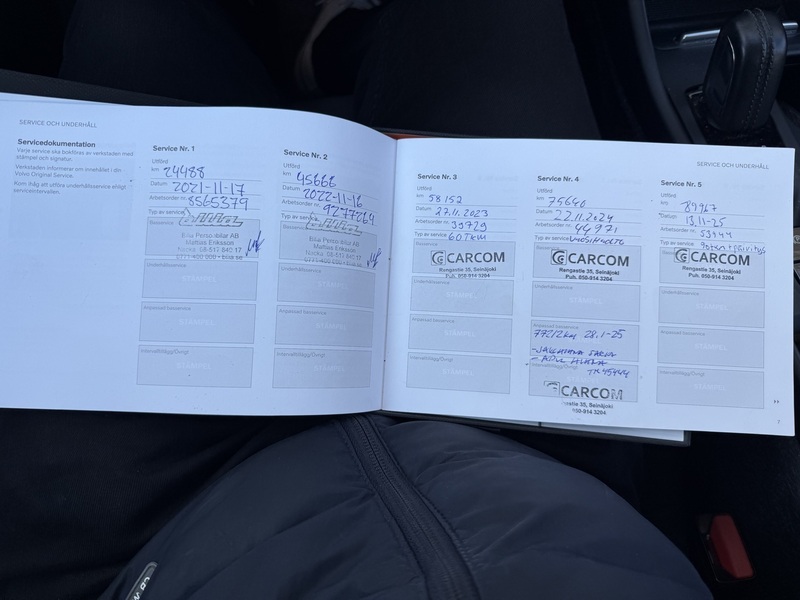 SERVICE OCH UNDERHÅLL
Servicedokumentation
Varje service ska bokföras av verkstaden med
stämpel och signatur.
Verkstaden informerar om innehållet i din
Volvo Original Service.
Kom ihåg att utföra underhållsservice enligt
serviceintervallen.
Service Nr. 1
Utförd
km 24488
Datum 2021-11-17
Arbetsorder nr. 8565379
Typ av service
Basservice
Bilia Personbilar AB
Mattias Eriksson
Nacka 08-517 640 17
0771-400 000 • bilia.se
Underhållsservice
STÄMPEL
Anpassad basservice
STÄMPEL
Intervalltillägg/Övrigt
STÄMPEL
Service Nr. 2
Utförd
km 45666
Datum 2022-11-16
Arbetsorder nr. 9277264
Typ av service
Bilia Personbilar AB
Mattias Eriksson
Nacka 08-517 640 17
0771-400 000 • bilia.se
Underhållsservice
STÄMPEL
Anpassad basservice
STÄMPEL
Intervalltillägg/Övrigt
STÄMPEL
SERVICE OCH UNDERHÅLL
Service Nr. 3
Utförd
km 58152
Datum 27.11.2023
Arbetsorder nr. 39729
Typ av service 60TKM
Basservice
CARCOM
Rengastie 35, Seinäjoki
Puh. 050-914 3204
Underhållsservice
STÄMPEL
Anpassad basservice
STÄMPEL
Intervalltillägg/Övrigt
STÄMPEL
Service Nr. 4
Utförd
km 75640
Datum 22.11.2024
Arbetsorder nr. 44971
Typ av service VUOSIHUOLTO
CARCOM
Rengastie 35, Seinäjoki
Puh. 050-914 3204
Underhållsservice
STÄMPEL
Anpassad basservice
77212km 28.1-25
Intervalltillägg/Övrigt
CARCOM
Rengastie 35, Seinäjoki
050-914 3204
Service Nr. 5
Utförd
km 89967
Datum 13.11-25
Arbetsorder nr. 53944
Typ av service
CARCOM
Rengastie 35, Seinäjoki
Puh. 050-914 3204
Underhållsservice
STÄMPEL
Anpassad basservice
STÄMPEL
Intervalltillägg/Övrigt
STÄMPEL
▸▸
7